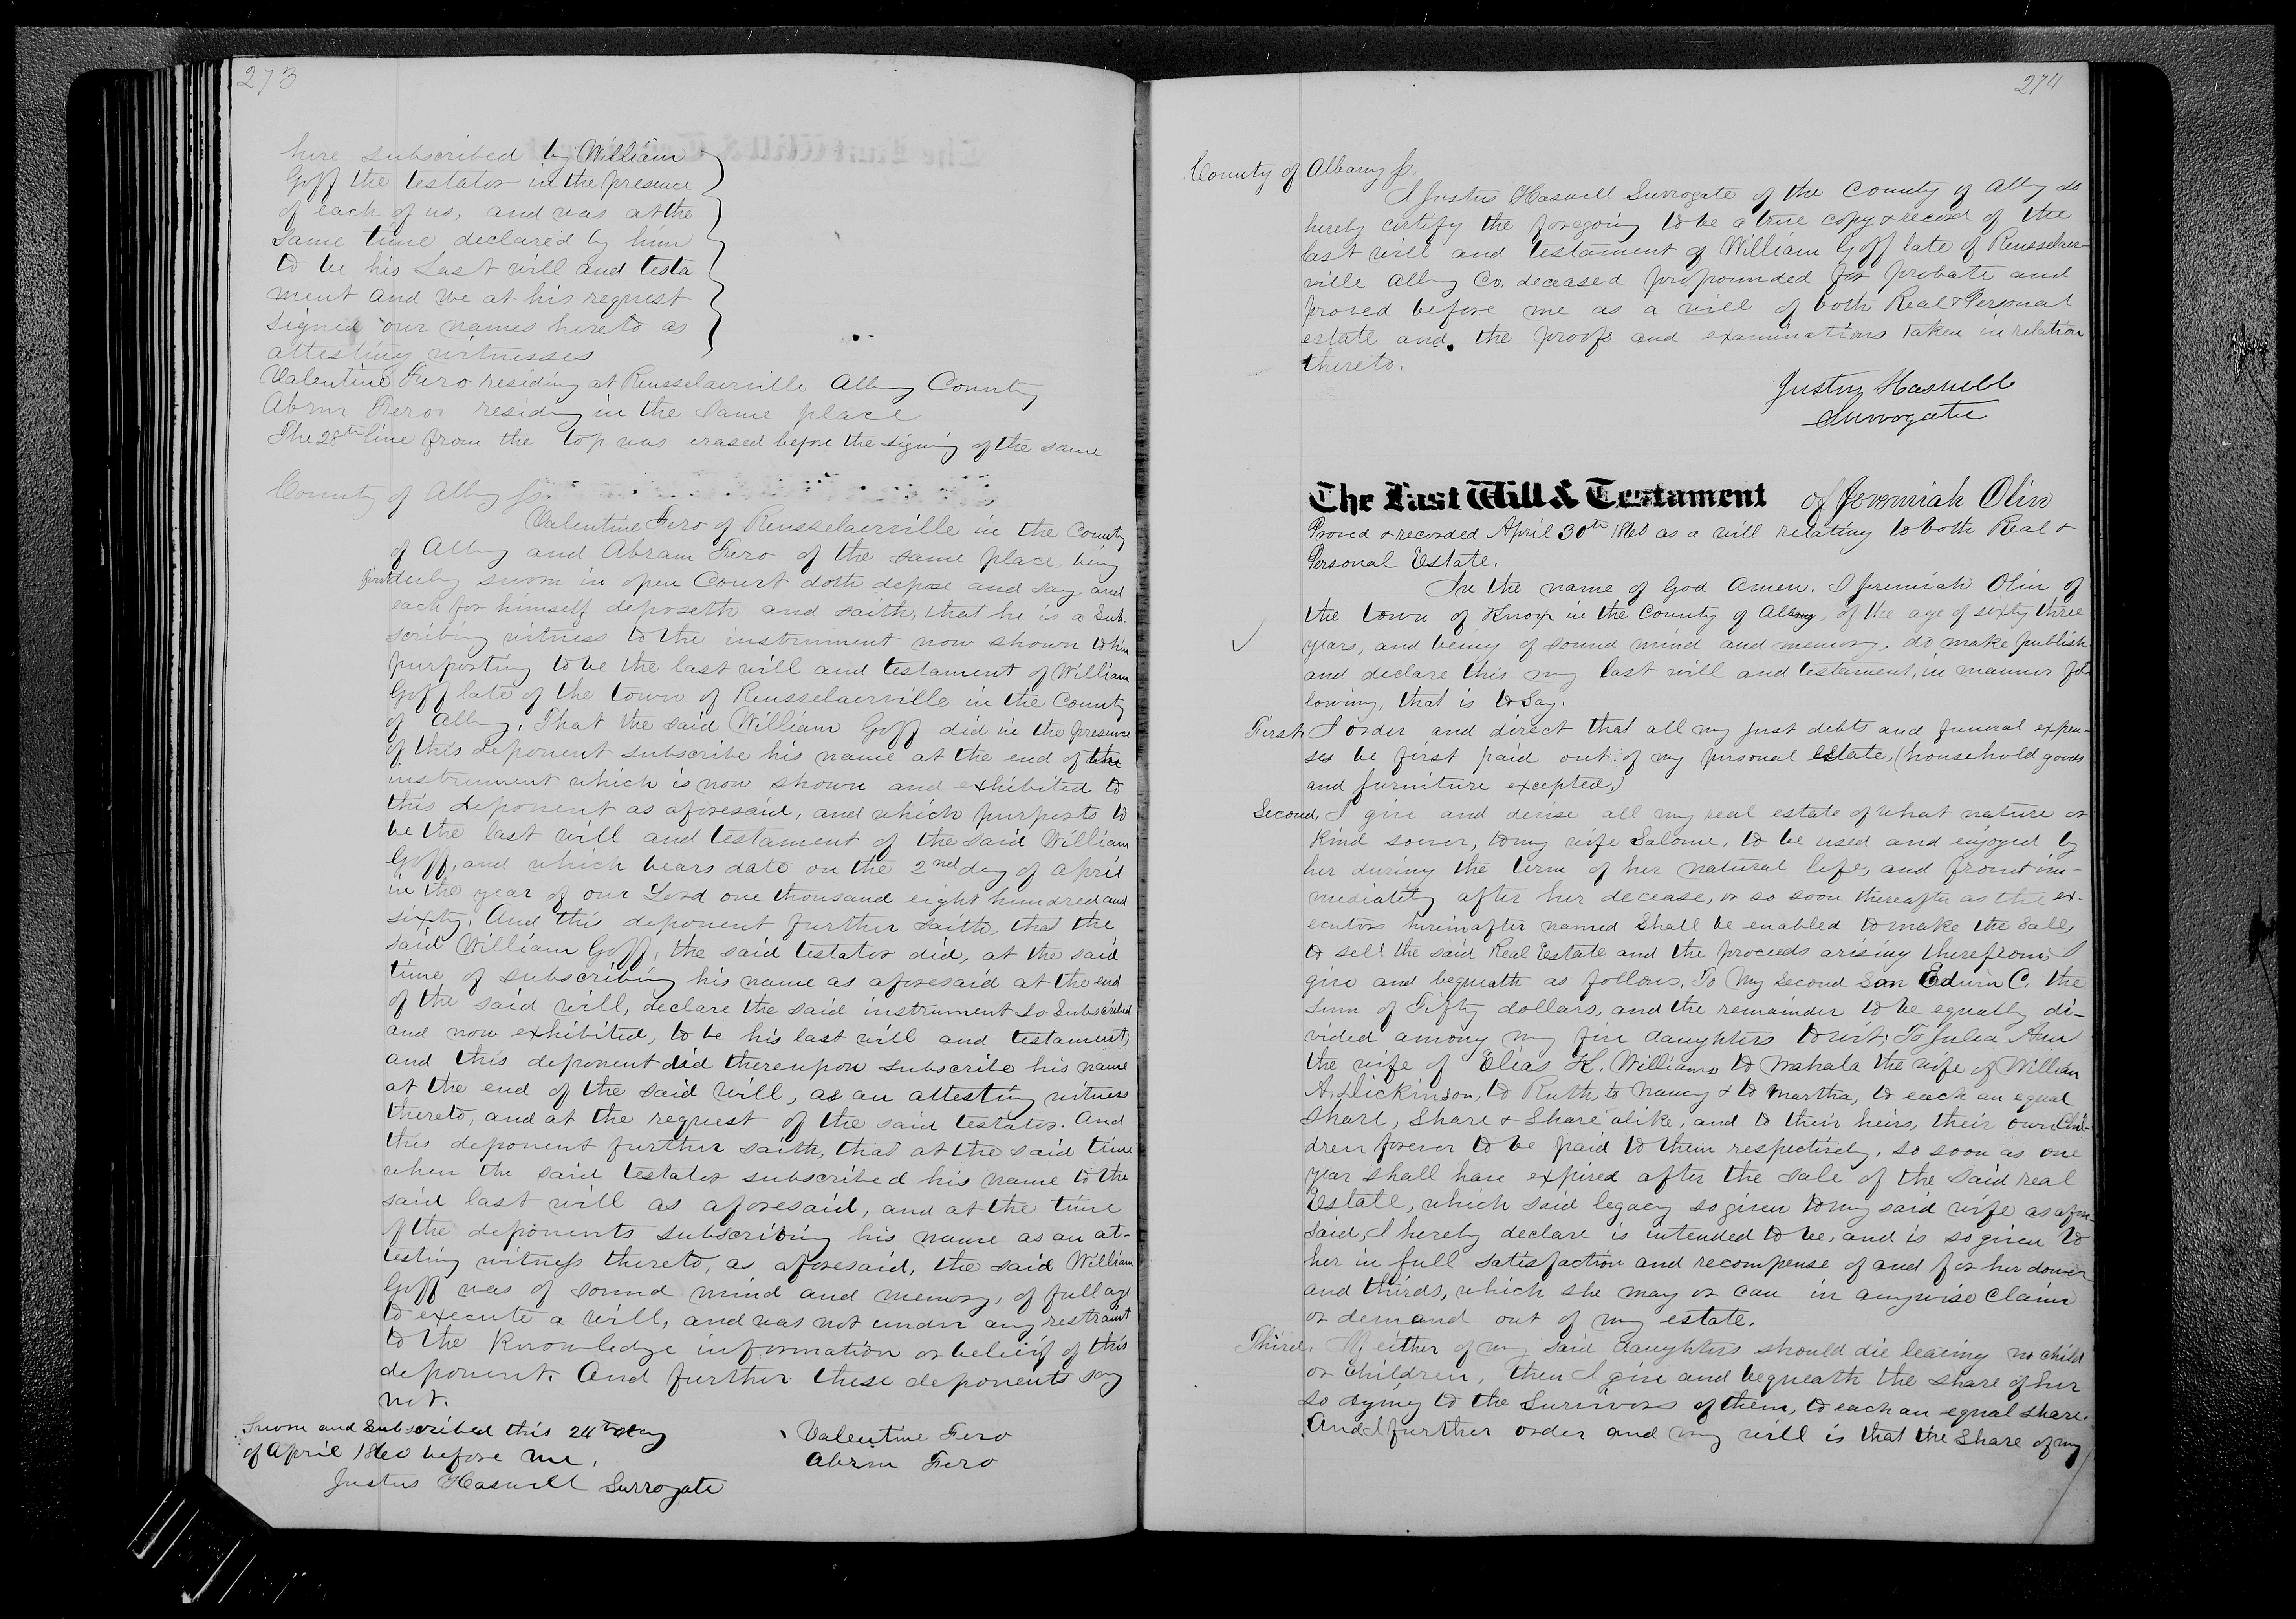 273
here subscribed by William
Goff the testator in the presence
of each of us, and was at the
same time declared by him
to be his Last will and testa
ment and we at his request
signed our names hereto as
attesting witnesses
Valentine Fero residing at Rensselaerville Albny County
Abrm Fero residing in the same place
The 28th line from the top was erased before the signing of the same
County of Albny ss.
Valentine Fero of Rensselaerville in the County
of Albny and Abram Fero of the same place being
first duly sworn in open Court doth depose and say and
each for himself deposeth and saith, that he is a Sub-
scribing witness to the instrument now shown to him
purporting to be the last will and testament of William
Goff late of the town of Rensselaerville in the County
of Albny. That the said William Goff did in the presence
of this deponent subscribe his name at the end of the
instrument which is now shown and exhibited to
this deponent as aforesaid, and which purports to
be the last will and testament of the said William
Goff, and which bears date on the 2nd day of April
in the year of our Lord one thousand eight hundred and
sixty. And this deponent further saith, that the
said William Goff, the said testator did, at the said
time of subscribing his name as aforesaid at the end
of the said will, declare the said instrument so Subscribed
and now exhibited, to be his last will and testament,
and this deponent did thereupon subscribe his name
at the end of the said will, as an attesting witness
thereto, and at the request of the said testator. And
this deponent further saith, that at the said time
when the said testator subscribed his name to the
said last will as aforesaid, and at the time
of the deponents subscribing his name as an at-
testing witness thereto, as aforesaid, the said William
Goff was of sound mind and memory, of full age
to execute a will, and was not under any restraint
to the knowledge information or belief of this
deponent. And further these deponents say
not.
Sworn and Subscribed this 24th day
of April 1860 before me.
Justus Haswell Surrogate
Valentine Fero
Abrm Fero
274
County of Albany ss.
I Justus Haswell Surrogate of the County of Albny do
hereby certify the foregoing to be a true copy & record of the
last will and testament of William Goff late of Rensselaer-
ville Albny Co. deceased propounded for probate and
proved before me as a will of both Real & Personal
estate and the proofs and examinations taken in relation
thereto.
Justus Haswell
Surrogate
The Last Will & Testament of Jeremiah Olin
Proved & recorded April 30th 1860 as a will relating to both Real &
Personal Estate.
In the name of God Amen. I Jeremiah Olin of
the town of Knox in the County of Albany, of the age of sixty three
years, and being of sound mind and memory, do make publish
and declare this my last will and testament, in manner fol
lowing, that is to Say.
First, I order and direct that all my just debts and funeral expen-
ses be first paid out of my personal estate, (household goods
and furniture excepted,)
Second, I give and devise all my real estate of what nature or
kind soever, to my wife Salome, to be used and enjoyed by
her during the term of her natural life, and from im-
mediately after her decease, or so soon thereafter as the ex-
ecutors hereinafter named Shall be enabled to make the Sale,
to sell the said Real Estate and the proceeds arising therefrom, I
give and bequeath as follows. To My Second Son Edwin C. the
Sum of Fifty dollars, and the remainder to be equally di-
vided among my five daughters to wit; To Julia Ann
the wife of Elias K. Williams to Mahala the wife of William
A. Dickinson, to Ruth, to Nancy & to Martha, to each an equal
Share, Share & Share alike, and to their heirs, their own Chil-
dren forever to be paid to them respectively, so soon as one
year shall have expired after the sale of the said real
Estate, which said legacy so given to my said wife as afore-
said, I hereby declare is intended to be, and is so given to
her in full satisfaction and recompense of and for her dower
and thirds, which she may or can in anywise Claim
or demand out of my estate.
Third. If either of my said daughters should die leaving no child
or children, then I give and bequeath the share of her
so dying to the Survivors of them, to each an equal share.
And I further order and my will is that the Share of my